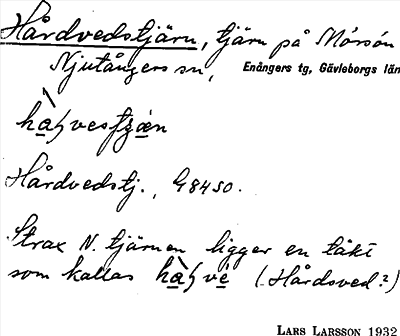 Hårdvedstjärn, tjärn på Mörsön
Njutångers sn, Enångers tg, Gävleborgs län
Hårdvedstj., G8450.
Strax N. tjärnen ligger en täkt
som kallas (Hårdsved?)
LARS LARSSON 1932